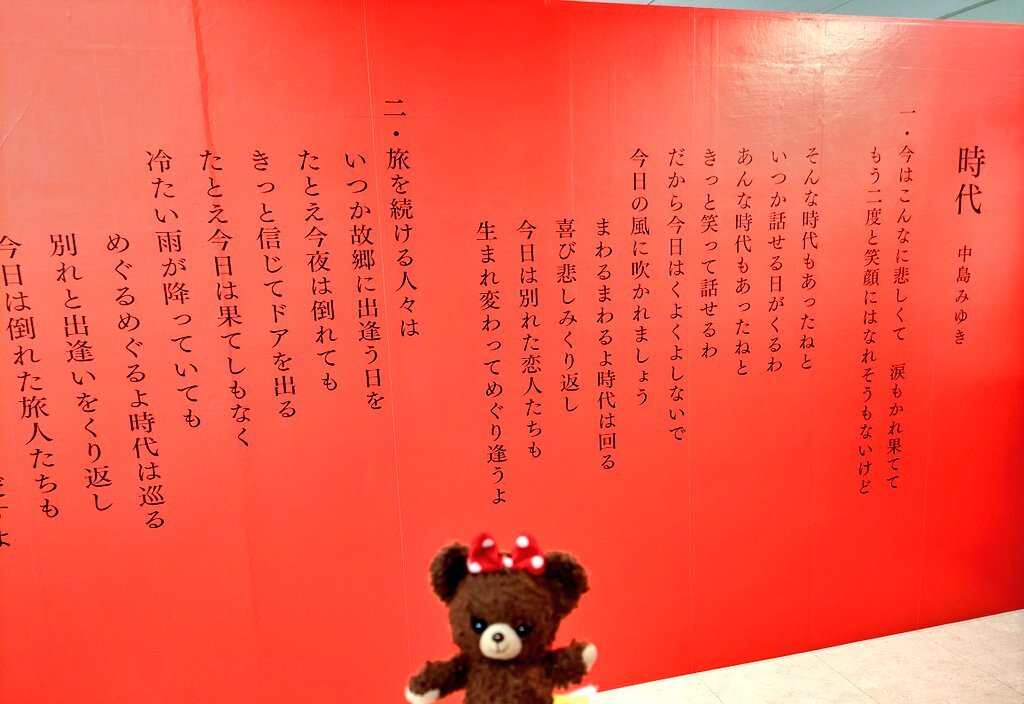 時代　中島みゆき
一・今はこんなに悲しくて　涙もかれ果てて
もう二度と笑顔にはなれそうもないけど
そんな時代もあったねと
いつか話せる日がくるわ
あんな時代もあったねと
きっと笑って話せるわ
だから今日はくよくよしないで
今日の風に吹かれましょう
まわるまわるよ時代は回る
喜び悲しみくり返し
今日は別れた恋人たちも
生まれ変わってめぐり逢うよ
二・旅を続ける人々は
いつか故郷に出逢う日を
たとえ今夜は倒れても
きっと信じてドアを出る
たとえ今日は果てしもなく
冷たい雨が降っていても
めぐるめぐるよ時代は巡る
別れと出逢いをくり返し
今日は倒れた旅人たちも